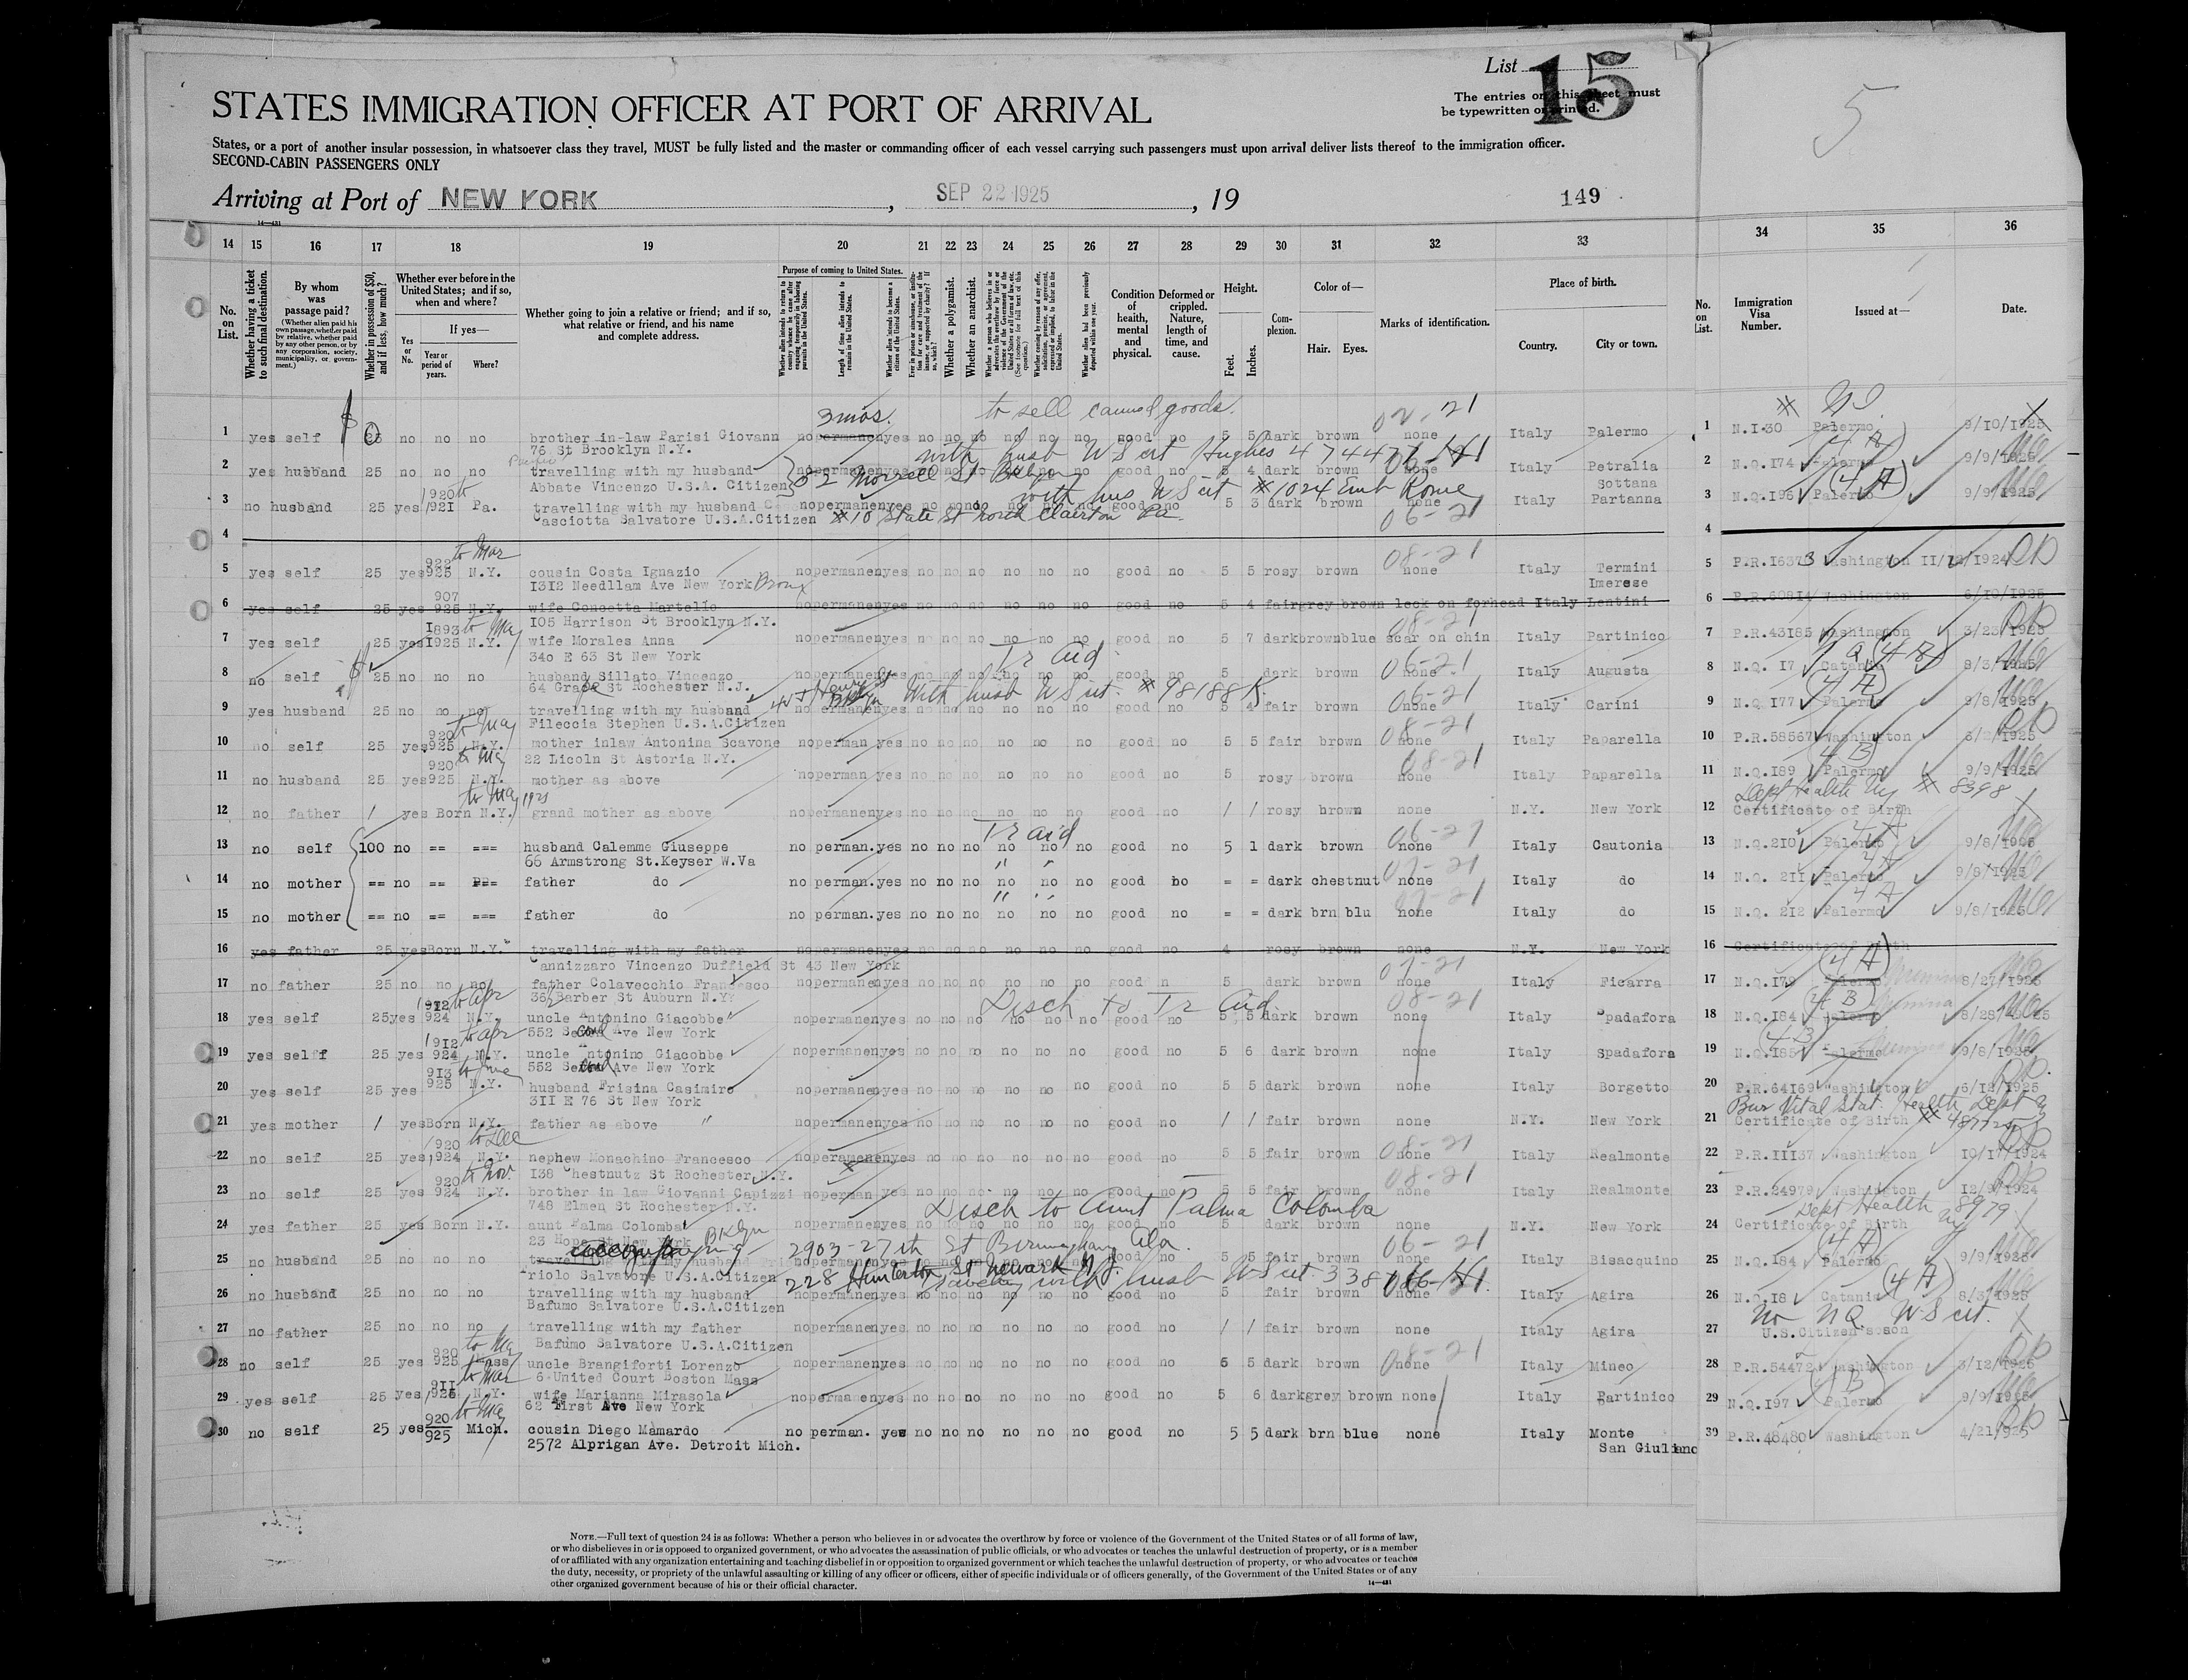 List 15
The entries on this sheet must
be typewritten or printed.
5
STATES IMMIGRATION OFFICER AT PORT OF ARRIVAL
States, or a port of another insular possession, in whatsoever class they travel, MUST be fully listed and the master or commanding officer of each vessel carrying such passengers must upon arrival deliver lists thereof to the immigration officer.
SECOND-CABIN PASSENGERS ONLY
Arriving at Port of NEW YORK, SEP 22 1925, 19 149
14 15 16 17 18 19 20 21 22 23 24 25 26 27 28 29 30 31 32 33 34 35 36
No. on List.
Whether having a ticket to such final destination.
By whom was passage paid?
(Whether alien paid his own passage, whether paid by relative, whether paid by any other person, or by any corporation, society, municipality, or government.)
Whether in possession of $50, and if less, how much?
Whether ever before in the United States; and if so, when and where?
Yes or No.
If yes—
Year or period of years.
Where?
Whether going to join a relative or friend; and if so, what relative or friend, and his name and complete address.
Purpose of coming to United States.
Length of time alien intends to remain in the United States.
Whether alien intends to become a citizen of the United States.
Whether a polygamist.
Whether an anarchist.
Condition of health, mental and physical.
Deformed or crippled. Nature, length of time, and cause.
Height.
Feet.
Inches.
Complexion.
Color of—
Hair. Eyes.
Marks of identification.
Place of birth.
Country. City or town.
No. on List.
Immigration Visa Number.
Issued at—
Date.
3 mos. to sell canned goods. 02-21
1 yes self no no no brother in-law Parisi Giovann no yes no no no no no no good no 5 5 dark brown none Italy Palermo 1 N.I.30 Palermo 9/10/1925
76 St Brooklyn N.Y. with husb US cit Hughes 474471
2 yes husband 25 no no no travelling with my husband no permanen yes no no good no 5 4 dark brown none Italy Petralia Sottana 2 N.Q.174 Palermo (4 A) 9/9/1925
Abbate Vincenzo U.S.A. Citizen 52 Morrell St Bklyn with hus US cit #1024 Emb Rome
3 no husband 25 yes 1920 to 1921 Pa. travelling with my husband no permanen yes no no no good no 5 3 dark brown none Italy Partanna 3 N.Q.196 Palermo (4 A) 9/9/1925
Casciotta Salvatore U.S.A.Citizen #10 State St north Clairton Pa. 06-21
4 4
5 yes self 25 yes 922 925 to Mar N.Y. cousin Costa Ignazio no permanen yes no no no no no no good no 5 5 rosy brown none 08-21 Italy Termini Imerese 5 P.R.16373 Washington 1924
1312 Needllam Ave New York Bronx
6 yes self 25 yes 907 925 N.Y. wife Concetta Martelio no permanen yes no no no no no no good no 5 4 fair grey brown leck on forhead Italy Lentini 6 P.R.60814 Washington 6/10/1925
105 Harrison St Brooklyn N.Y.
7 yes self 25 yes 1893 1925 to May N.Y. wife Morales Anna no permanen yes no no no no no no good no 5 7 dark brown blue scar on chin 08-21 Italy Partinico 7 P.R.43185 Washington 3/23/1925
340 E 63 St New York Tr aid
8 no self 25 no no no husband Sillato Vincenzo no permanen yes no no no no no no good no 5 dark brown none 06-21 Italy Augusta 8 N.Q. 17 Catania 8/3/1925
64 Grape St Rochester N.J. With husb US cit. #98188
9 yes husband 25 no no no travelling with my husband no ermanen yes no no no no no no good no 5 4 fair brown none 06-21 Italy Carini 9 N.Q.177 Palermo (4 A) 9/8/1925
Fileccia Stephen U.S.A.Citizen
10 no self 25 yes 920 925 to May N.Y. mother inlaw Antonina Scavone no perman yes no no no no no no good no 5 5 fair brown none 08-21 Italy Paparella 10 P.R.58567 Washington 1925
22 Licoln St Astoria N.Y.
11 no husband 25 yes 920 925 to May N.Y. mother as above no perman yes no no no no no no good no 5 rosy brown none 08-21 Italy Paparella 11 N.Q.189 Palermo (4 B) 9/9/1925
to May 1925 Dept Health Ny #8398
12 no father / yes Born N.Y. grand mother as above no permanen yes no no no no no no good no / / rosy brown none N.Y. New York 12 Certificate of Birth
Tr aid
13 no self 100 no == === husband Calemme Giuseppe no perman. yes no no no no no no good no 5 1 dark brown none Italy Cautonia 13 N.Q.210 Palermo 9/8/1925
66 Armstrong St.Keyser W.Va
14 no mother == no == father do no perman. yes no no no no no no good ho = = dark chestnut none 07-21 Italy do 14 N.Q. 211 Palermo 4 A 9/8/1925
15 no mother == no == === father do no perman. yes no no no no no no good no = = dark brn blu none 07-21 Italy do 15 N.Q. 212 Palermo 4 A 9/8/1925
16 yes father 25 yes Born N.Y. travelling with my father no permanen yes no no no no no no good no 4 rosy brown none N.Y. New York 16 Certificate of Birth
Cannizzaro Vincenzo Duffield St 43 New York
17 no father 25 no no no father Colavecchio Francesco no permanen yes no no no no no no good n 5 dark brown none 07-21 Italy Ficarra 17 N.Q.179 Palermo Messina (4 A) 8/27/1925
36 Barber St Auburn N.Y. Disch to Tr Aid
18 yes self 25 yes 1912 924 to Apr N.Y. uncle Antonino Giacobbe no permanen yes no no no no no no good no 5 5 dark brown none 08-21 Italy Spadafora 18 N.Q.184 Palermo Messina (4 B)
552 Second Ave New York
19 yes selff 25 yes 1912 924 to Apr N.Y. uncle Antonino Giacobbe no permanen yes no no no no no no good no 5 6 dark brown none Italy Spadafora 19 N.Q.185 Palermo Messina (4 B) 9/8/1925
552 Second Ave New York
20 yes self 25 yes 913 925 N.Y. husband Frisina Casimiro no permanen yes no no no no no no good no 5 5 dark brown none Italy Borgetto 20 P.R.64169 Washington 6/12/1925
311 E 76 St New York Bur Vital Stat. Health Dept
21 yes mother / yes Born N.Y. father as above " no permanen yes no no no no no no good no / / fair brown none N.Y. New York 21 Certificate of Birth
22 no self 25 yes 1920 1924 to Dec N.Y. nephew Monachino Francesco no permanen yes no no no no no no good no 5 5 fair brown none 08-21 Italy Realmonte 22 P.R.11137 Washington 10/17/1924
138 Chestnutz St Rochester N.Y.
23 no self 25 yes 920 924 to Nov. N.Y. brother in law Giovanni Capizzi no perman yes no no no no no no good no 5 5 fair brown none 08-21 Italy Realmonte 23 P.R.24979 Washington 12/9/1924
748 Elmen St Rochester N.Y. Disch to Aunt Palma Colomba Dept Health 8979
24 yes father 25 yes Born N.Y. aunt Palma Colomba no permanen yes no no no no no no good no 5 dark brown none N.Y. New York 24 Certificate of Birth
23 Hope St New York Bklyn 2903-27th St Birmingham Ala.
25 no husband 25 no no no travelling with my husband no permanen yes good no 5 5 fair brown none 06-21 Italy Bisacquino 25 N.Q.184 Palermo (4 A) 9/9/1925
riolo Salvatore U.S.A.Citizen 228 Hunterton St Newark N.J. with husb US cit.
26 no husband 25 no no no travelling with my husband no permanen yes no no no no no no good no 5 fair brown none Italy Agira 26 N.Q.18 Catania (4 A) 8/3/1925
Bafumo Salvatore U.S.A.Citizen no N Q. U S cit.
27 no father 25 no no no travelling with my father no permanen yes no no no no no no good no / / fair brown none Italy Agira 27 U.S.Citizen'sson
Bafumo Salvatore U.S.A.Citizen
28 no self 25 yes 920 925 to May Mass uncle Brangiforti Lorenzo no permanen yes no no no no no no good no 6 5 dark brown none 08-21 Italy Mineo 28 P.R.54472 Washington 3/12/1925
6 United Court Boston Mass
29 yes self 25 yes 911 1925 to Mar N.Y. wife Marianna Mirasola no perma en yes no no no no no no good no 5 6 dark grey brown none Italy Partinico 29 N.Q.197 Palermo 9/9/1925
62 First Ave New York
30 no self 25 yes 920 925 to May Mich. cousin Diego Mamardo no perman. yes no no no no no no good no 5 5 dark brn blue none Italy Monte San Giuliano 30 P.R.48480 Washington 4/21/925
2572 Alprigan Ave. Detroit Mich.
NOTE.—Full text of question 24 is as follows: Whether a person who believes in or advocates the overthrow by force or violence of the Government of the United States or of all forms of law,
or who disbelieves in or is opposed to organized government, or who advocates the assassination of public officials, or who advocates or teaches the unlawful destruction of property, or is a member
of or affiliated with any organization entertaining and teaching disbelief in or opposition to organized government or which teaches the unlawful destruction of property, or who advocates or teaches
the duty, necessity, or propriety of the unlawful assaulting or killing of any officer or officers, either of specific individuals or of officers generally, of the Government of the United States or of any
other organized government because of his or their official character.
14—431